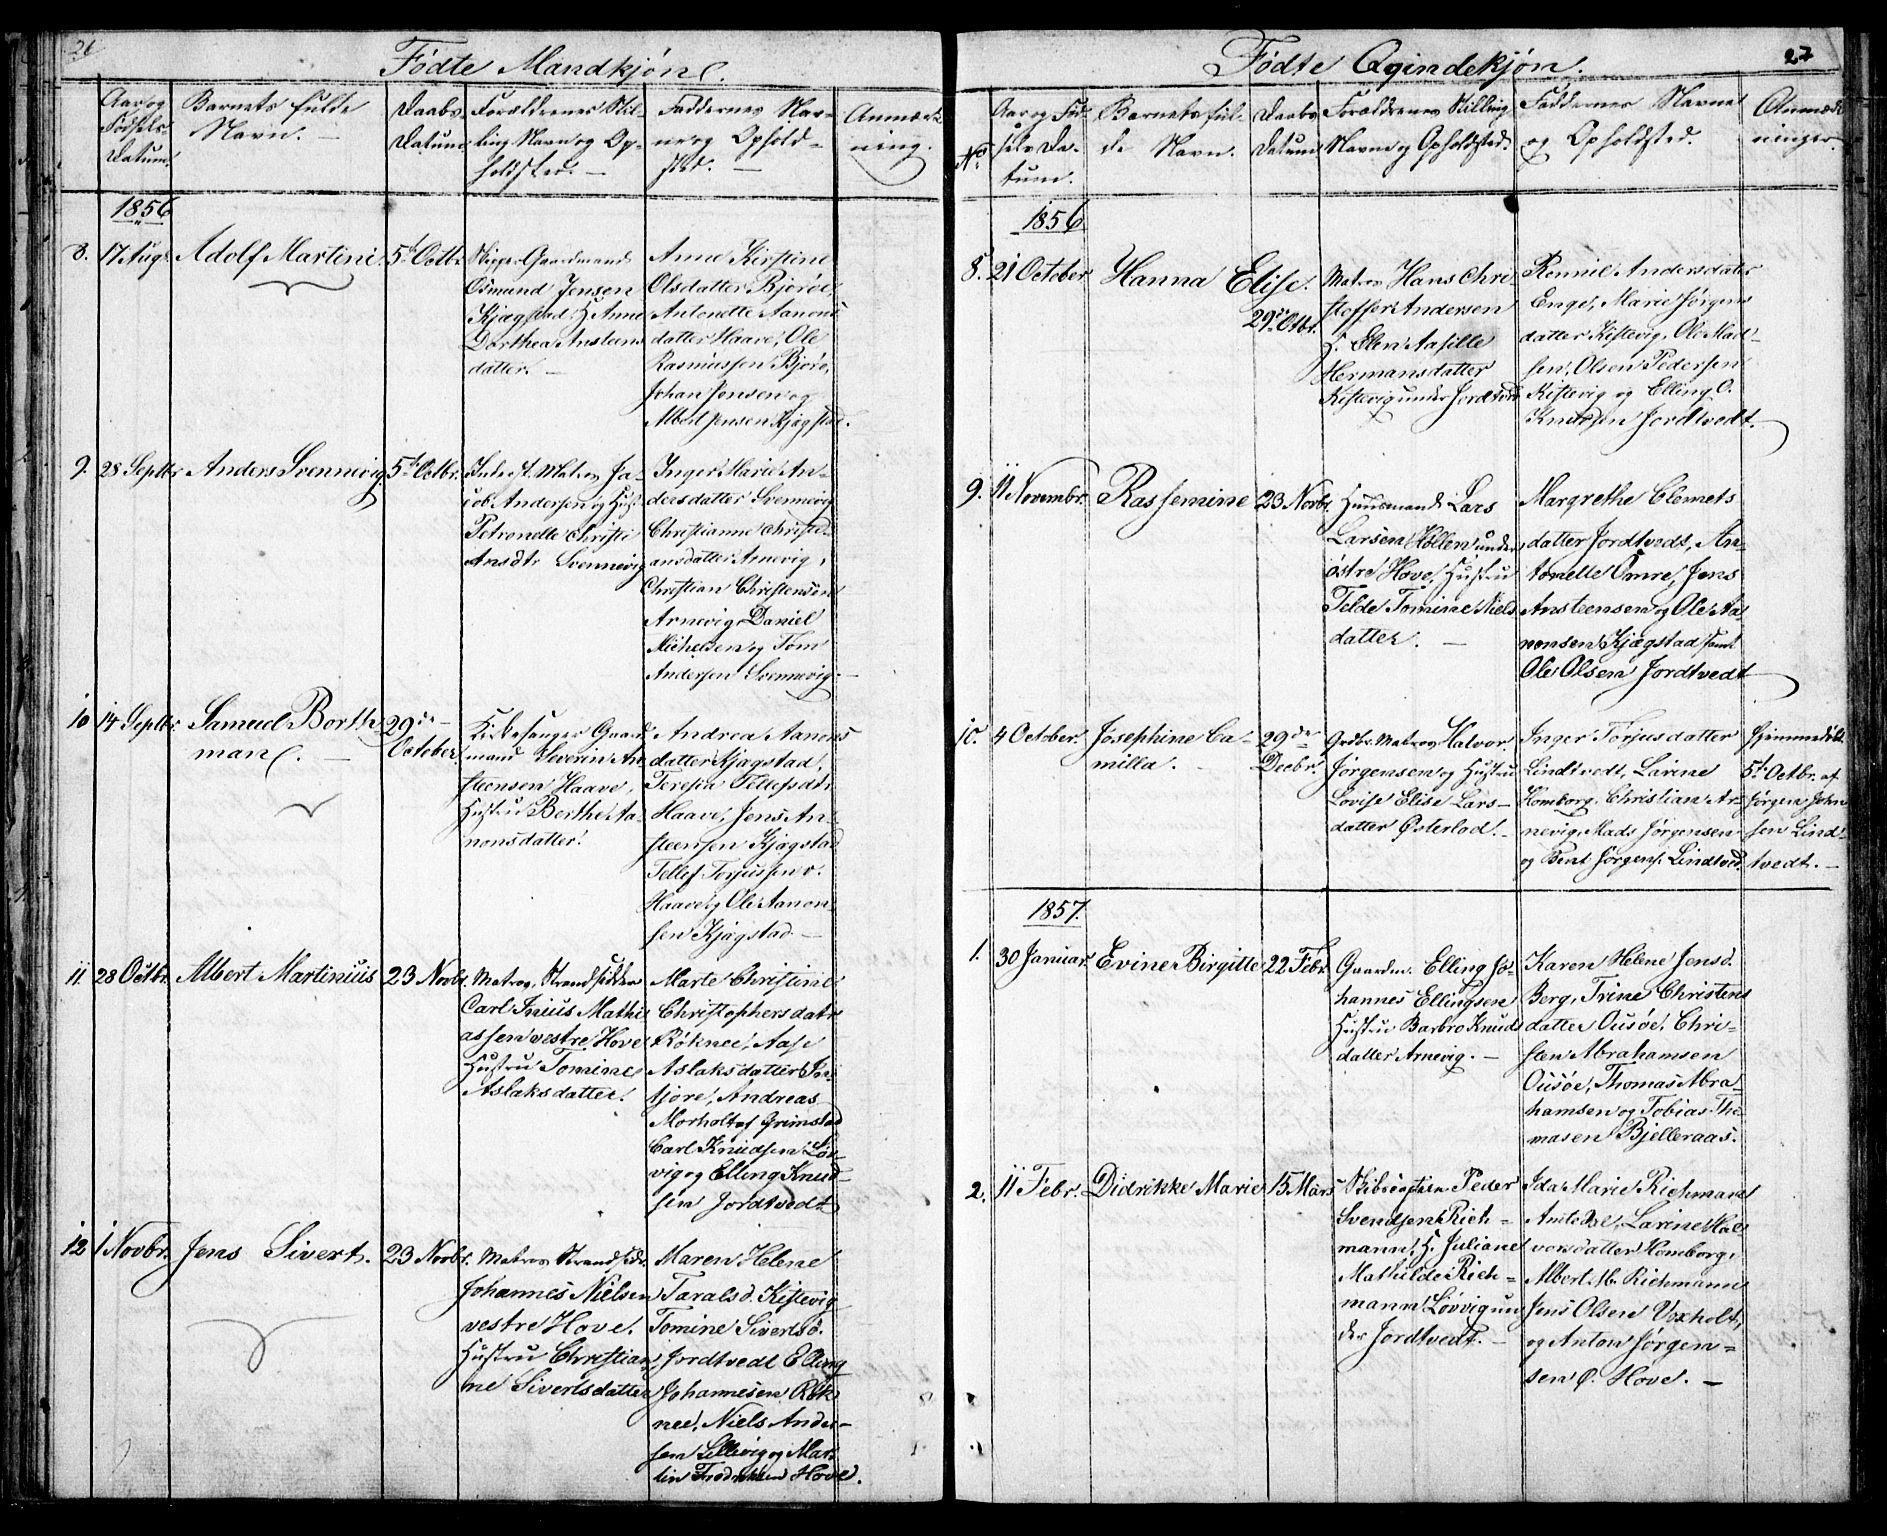 26
Fødte Mandkjøn.
Aar og
Fødsels
Datum.
Barnets fulde
Navn. —
Daabs
Datum
Forældrenes Stil-
ling Navn og Op-
holdsted. —
Faddernes Nav-
ne og Ophold-
sted. —
Anmærk
ning.
1856
8.
17 Aug.
Adolf Martini.
5te Octbr.
Skipper Gaardmand
Osmund Jensen
Kjægstad H. Anne
Dorthea Ansteens
datter. —
Anne Kirstine
Olsdatter Bjorøe,
Antonette Aanons
datter Haave, Ole
Rasmussen Bjorø,
Johan Jensen og
Albert Jensen Kjægstad.
9.
28 Septbr
Anders Svennevig
5te Octbr.
Matros Ja-
cob Andersen og Hust.
Petronelle Christi
Ansdtr Svennevig
Inger Marie An-
dersdatter Svennevig
Christianne Christi-
ansdatter Arnevig,
Christian Christensen
Arnevig, Daniel
Michelsen og Tom
Andersen Svennevig. —
10
14 Septbr
Samuel Borth-
man. —
29de
October.
Kirkesanger Gaard
mand Severin An
steensen Haave,
Hustru Berthe Aa-
nonsdatter.
Andrea Aanons
datter Kjægstad,
Teresia Tellefsdtr
Haave, Jens An-
steensen Kjægstad
Tellef Torjussen
Haave og Ole Aanon-
sen Kjægstad. —
11.
28 Octbr.
Albert Martinius
23 Novbr.
Matros, Strandsidder
Carl Inius Mathi
assen vestre Hove
Hustru Tomine
Aslaksdatter.
Marte Christine
Christophersdatr
Røknee, Aase
Aslaksdatter In-
tjøre, Andreas
Morholt af Grimstad
Carl Knudsen Løv-
vig og Elling Knud-
sen Jordtvedt
12
1 Novbr.
Jens Sivert.
23 Novbr.
Matros Strandsidr.
Johannes Nielsen
vestre Hove.
Hustru Christian
ne Sivertsdatter
Maren Helene
Taralsd. Kistevig
Tomine Sivertsd.
Jordtvedt Elling
Johannesen Røk
nee, Niels Ander-
sen Lillevig og Mar-
tin Fredriksen Hove.
27
Fødte Qvindekjøn.
No
Aar og Fød-
sels Da-
tum.
Barnets ful-
de Navn.
Daabs
Datum
Forældrenes Stilling
Navne og Opholdsted.
Faddernes Navne
og Opholdsted.
Anmærk
ninger
1856
8.
21 October
Hanna Elise.
29de Octbr.
Matros Hans Chri
stoffer Andersen
H. Elen Aasille
Hermansdatter
Kistevig under Jordtvedt
Rennie Andersdatter
Enge, Marie Jørgens
datter Kistevig, Ole Mad-
sen, Olsen Pedersen
Kistevig og Elling O.
Knudsen Jordtvedt.
9.
11 Novembr.
Rassemine
23 Novbr.
Huusmand Lars
Larsen Hollen under
østre Hove, Hustru
Telde Tomine Niels
datter. —
Margrethe Clemets
datter Jordtvedt, An-
tonelle Omre, Jens
Ansteensen og Ole Aa
nonsen Kjægstad samt
Ole Olsen Jordtvedt
10.
4 October.
Josephine Ca-
milla. —
29de
Decbr.
Matros Halvor
Jørgensen og Hustru
Lovise Elise Lars-
datter Østerlod. —
Inger Torjusdatter
Lindtvedt, Larine
Homborg, Christian Ar-
nevig, Mads Jørgensen
og Bent Jørgens. Lindtved.
Hjemmedøbt
5te Octbr. af
Jørgen John
sen Lind-
tvedt. —
1857.
1.
30 Januar.
Evine Birgitte
22 Febr.
Gaardm. Elling Jo-
hannes Ellingsen
Hustru Barbro Knuds
datter Arnevig. —
Karen Helene Jensd.
Berg, Trine Christens
datter Ousøe, Chri-
sten Abrahamsen
Ousøe, Thomas Abra-
hamsen og Tobias Tho
masen Bjelleraas.
2.
11 Febr.
Didrikke Marie
15 Mars
Skibscaptein Peder
Svendsen Rich-
mann, H. Juliane
Mathilde Rich-
mann Løvvig un
der Jordtvedt. —
Ida Marie Richmann
Larine Hal
vorsdatter Homborg,
Albert M. Richmann
Jens Olsen Voxholt,
og Anton Jørgen-
sen Ø. Hove. —